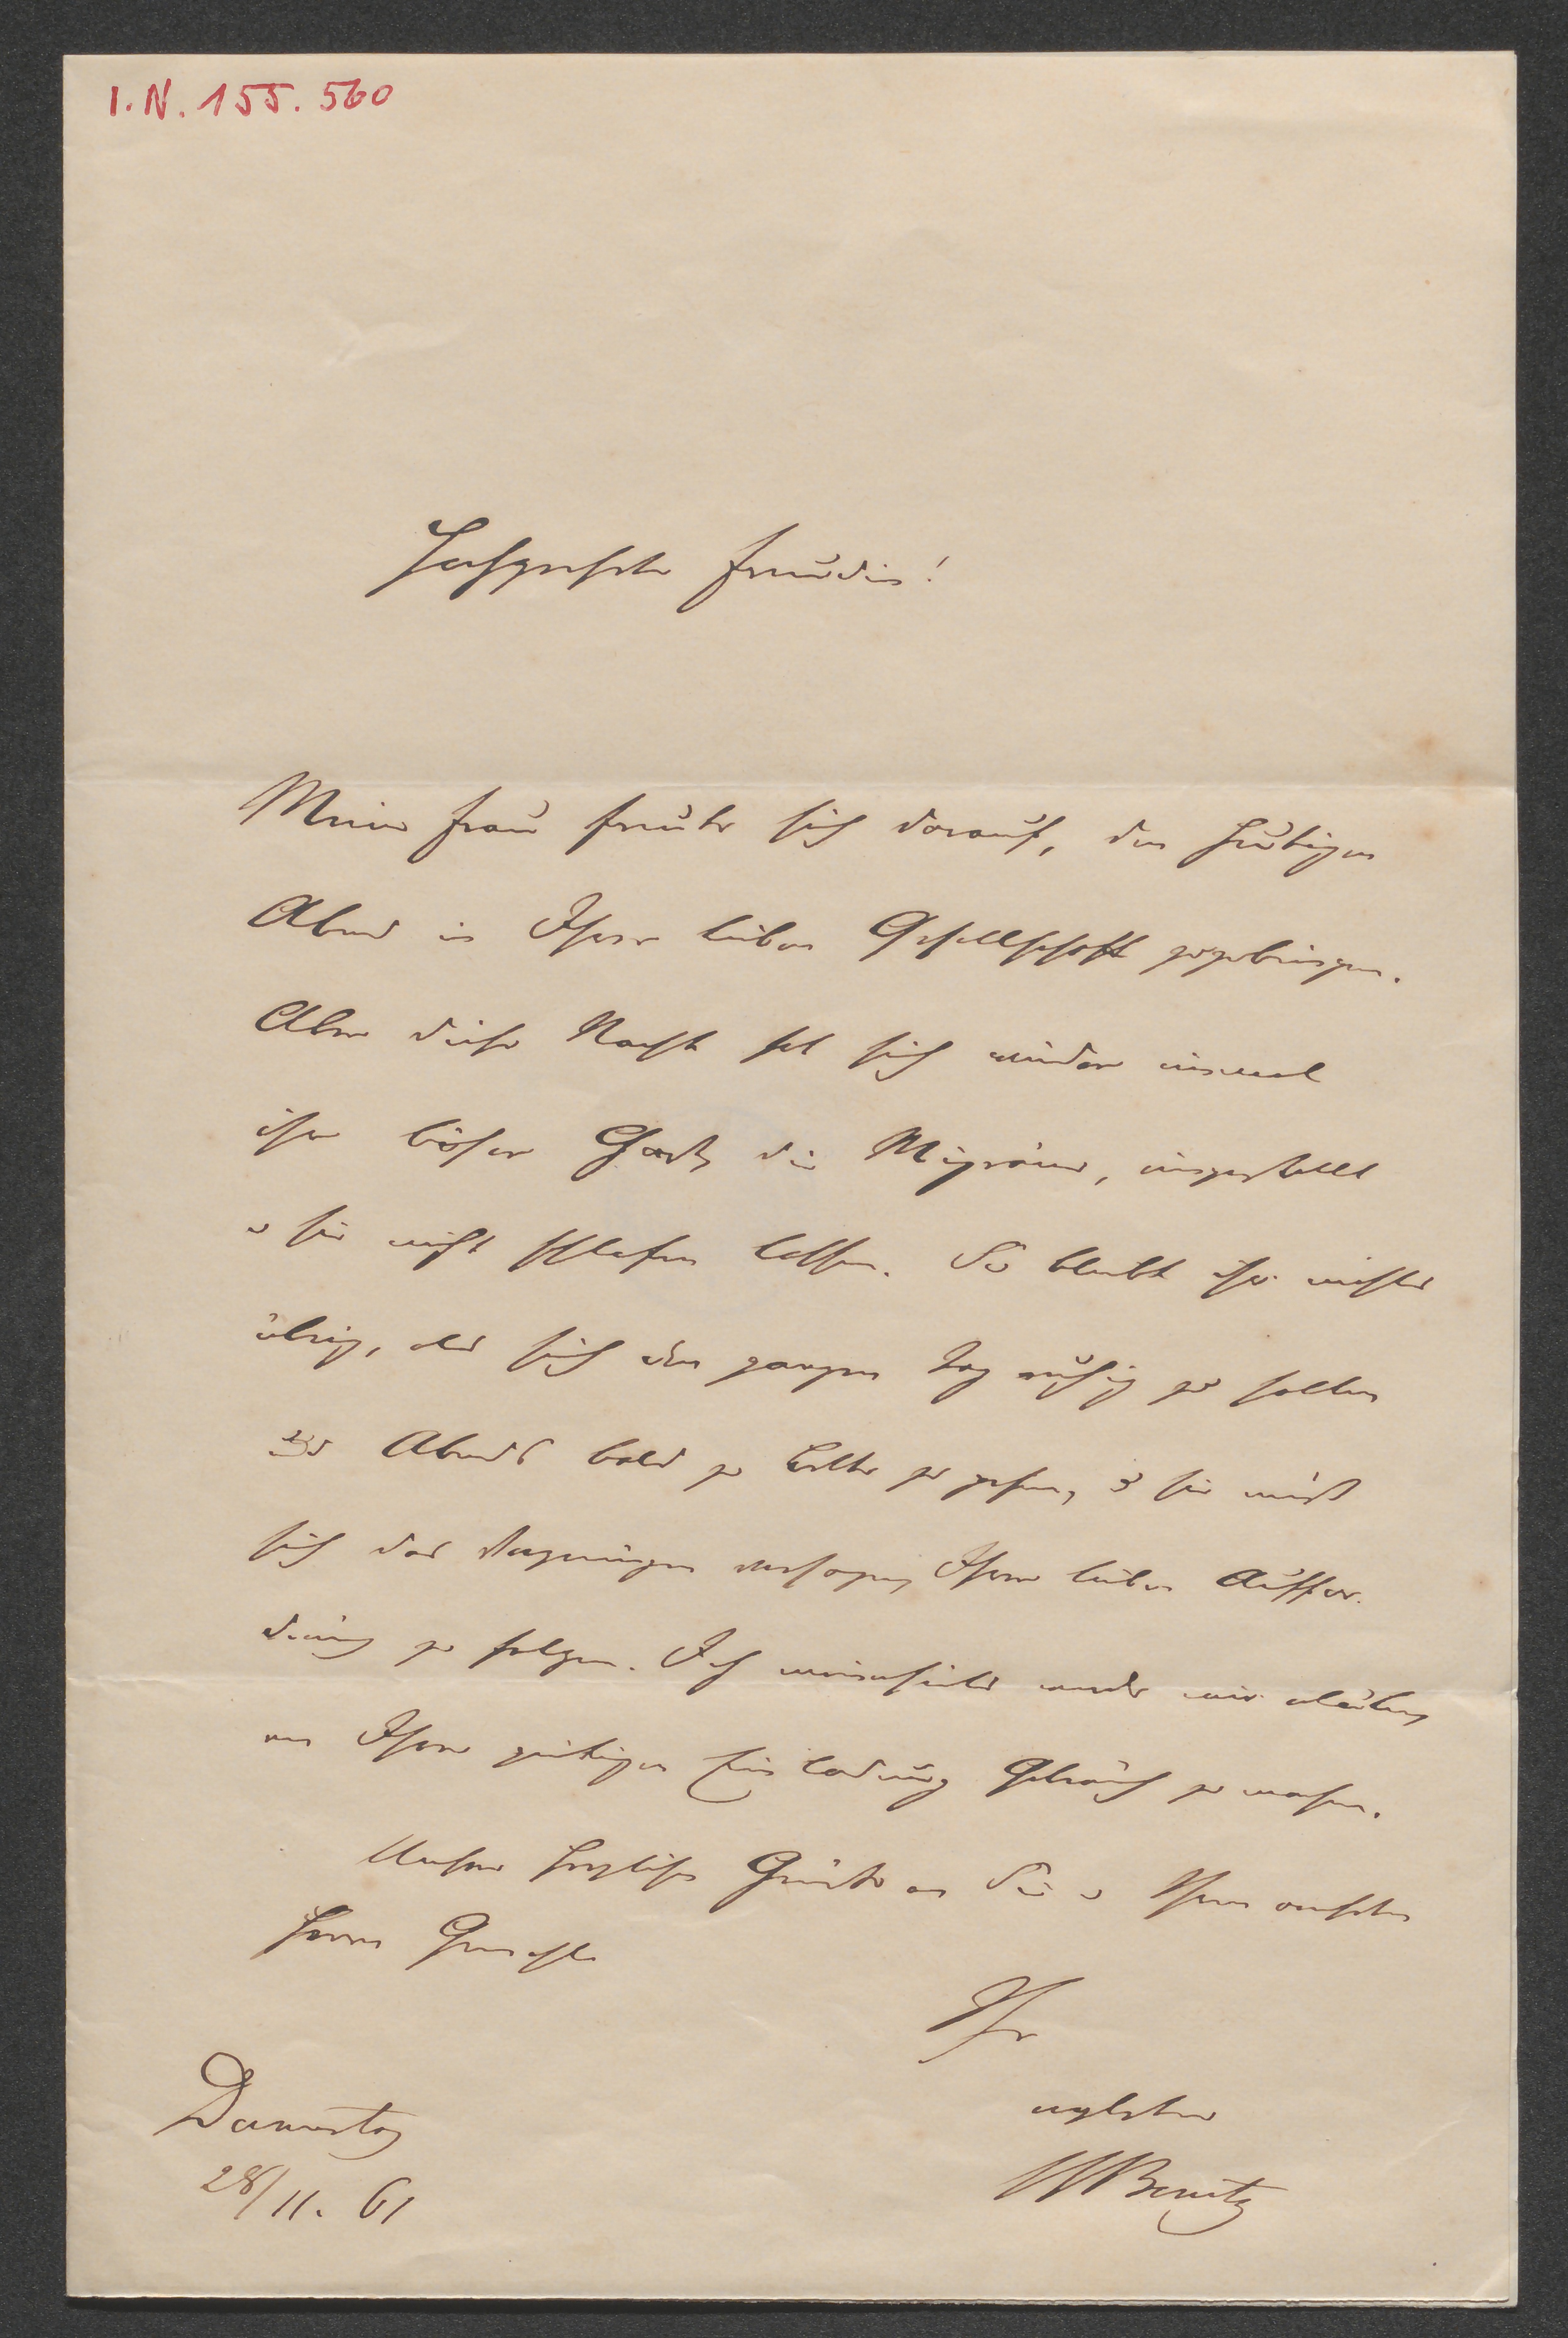 I.N. 155.560
Hochgeehrte Freundin!
Meine Frau freute sich darauf, den heutigen
Abend in Ihrer lieben Gesellschaft zuzubringen.
Aber diese Nacht hat sich wieder einmal
ihr böser Gast, die Migräne, eingestellt
u sie nicht schlafen lassen. So bleibt ihr nichts
übrig, als sich den ganzen Tag ruhig zu halten
und Abends bald zu Bette zu gehen, & sie muß
sich das Vergnügen versagen, Ihrer lieben Auffor-
derung zu folgen. Ich meinerseits werde mir erlauben
von Ihrer gütigen Einladung Gebrauch zu machen.
Unsere herzlichen Grüße an Sie u Ihren verehrten
Herrn Gemahl
Ihr
ergebenster
Donnerstag
28/11. 61